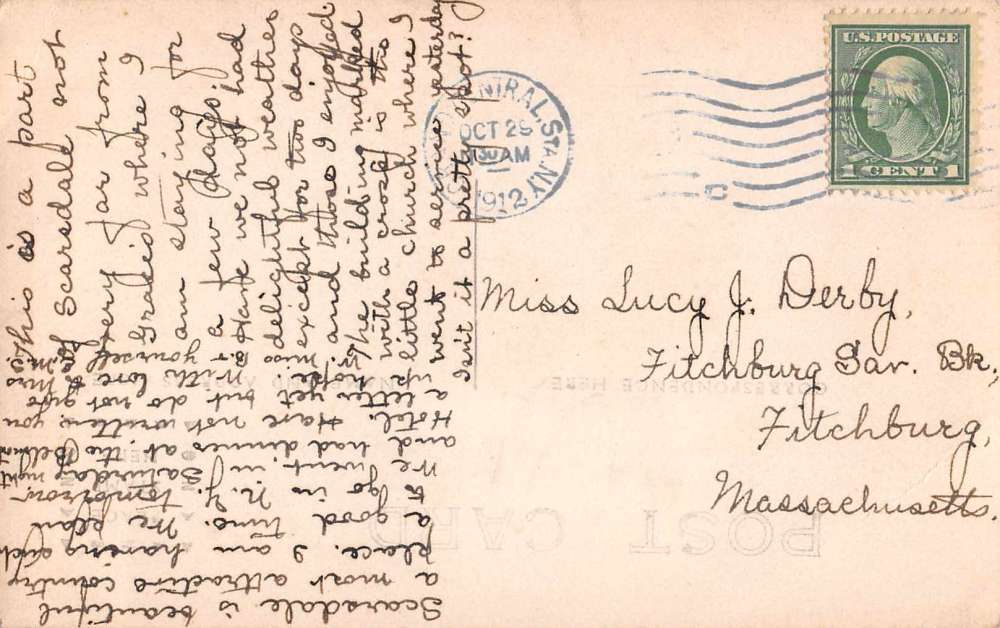 This is a part
of Scarsdale not
very far from
Gracie's where I
am staying for
a few days.
Have we not had
delightful weather
except for two days
and those I enjoyed.
The building marked
with a cross is the
little church where I
went to service yesterday
Isn't it a pretty spot?
Scarsdale is beautiful
a most attractive country
place. I am having such
a good time. We plan
to go in N.Y. tomorrow.
We went in Saturday night
and had dinner at the Belmont
Hotel. Have not written you
a letter yet but do not give
up hope.
With love to Mrs
W. Miss B. & yourself
U.S. POSTAGE
1 CENT 1
CENTRAL STA. N.Y.
OCT 28
30 AM
1912
C
Miss Lucy J. Derby,
Fitchburg Sav. Bk.,
Fitchburg,
Massachusetts.
POST CARD
CORRESPONDENCE HERE
NAME AND ADDRESS HERE